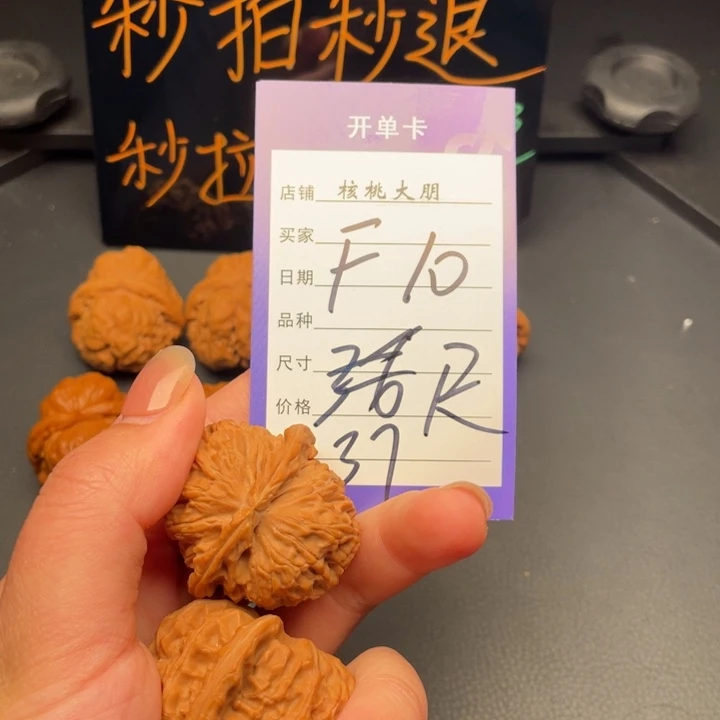 秒拍秒退
秒拉
开单卡
店铺 核桃大朋
买家 F 10
日期
品种
尺寸
价格
37